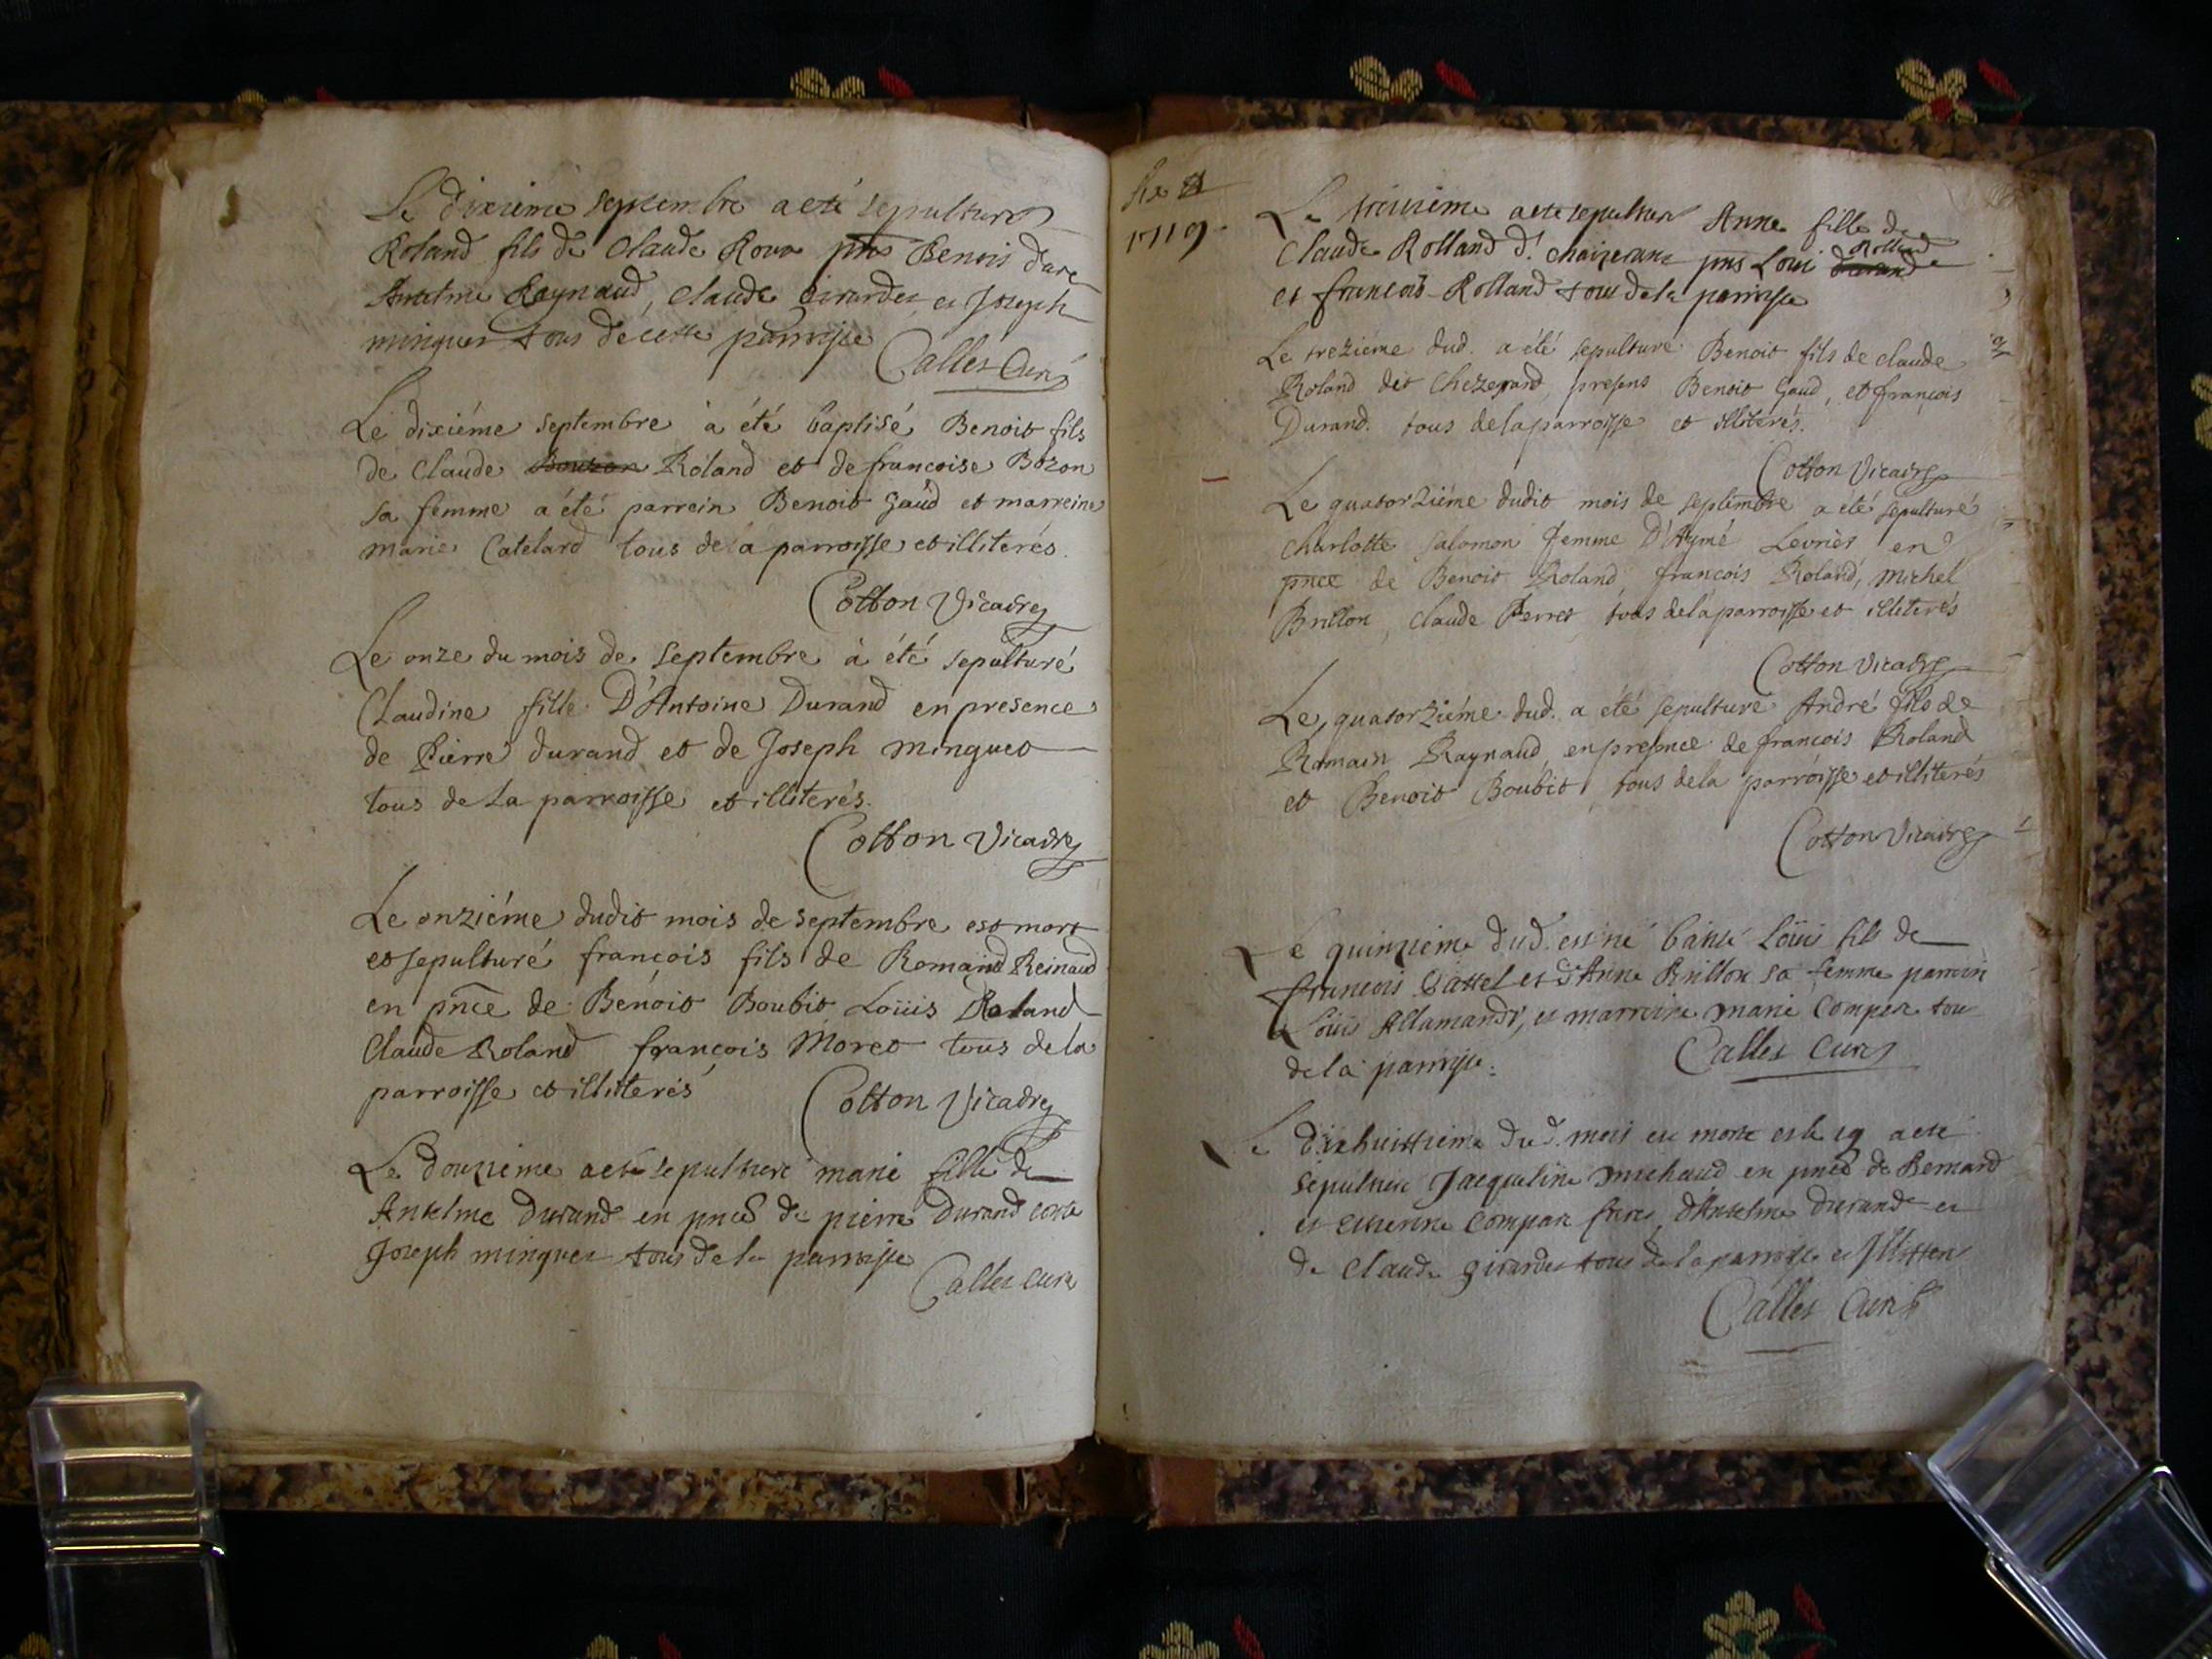 Le dixieme septembre a eté sepulturé
Roland fils de Claude Roux pns Benois dare
Anselme Raynaud, Claude Girardet et Joseph
minguet tous de cette parroisse
Calles Curé
Le dixiéme septembre à été baptisé Benoit fils
de Claude Bouzon Roland et de francoise Bozon
sa femme a été parrein Benoit Gaud et marreine
marie Catelard tous de la parroisse et illiterés.
Cotton Vicaire
Le onze du mois de septembre à été sepulturé
Claudine fille D'Antoine Durand en presence
de Pierre durand et de Joseph minguet
tous de La parroisse et illiterés.
Cotton Vicaire
Le onziéme dudit mois de septembre est mort
et sepulturé francois fils de Romain Reinaud
en pnce de Benoit Boubit Loüis Roland
Claude Roland françois Moret tous dela
parroisse et illiterés
Cotton Vicaire
Le douzieme a eté sepulturé marie fille de
Anselme Durand en pnce de pierre Durand
Joseph minguet tous de la parroisse
Calles curé
1719.
Le treizieme a eté sepulturé Anne fille de
Rolland
Claude Rolland d. pns Loui durand
et francois Rolland tous de la parroisse
Le trezième dud. a été sepulturé Benoit fils de claude
Roland dit Chezerand, presens Benoit Gaud, et françois
Durand. tous dela parroisse et illiterés.
Cotton Vicaire
Le quatorziéme dudit mois de septembre a été sepulturé
Charlotte Salomon femme D'Aymé Levrier en
pnce de Benoit Roland, francois Roland, Michel
Brillon, Claude Perret tous dela parroisse et illiterés
Cotton Vicaire
Le quatorziéme dud. a été sepulturé André fils de
Romain Raynaud, en presence de francois Roland
et Benoit Boubit, tous dela parroisse et illiterés
Cotton Vicaire
Le quinzieme dud. est né batisé Loüis fils de
francois et d'Anne Brillon sa femme parrein
Loüis Allamand, et marreine marie Compere tous
de la parroisse.
Calles Curé
Le dixhuittieme dud. mois est morte et le 19 a eté
sepulturé Jacqueline michaud en pnce de Bernard
et estienne Compare freres, d'Anselme Durand et
de Claude Girardet tous de la parroisse et Jllitteré
Calles Curé